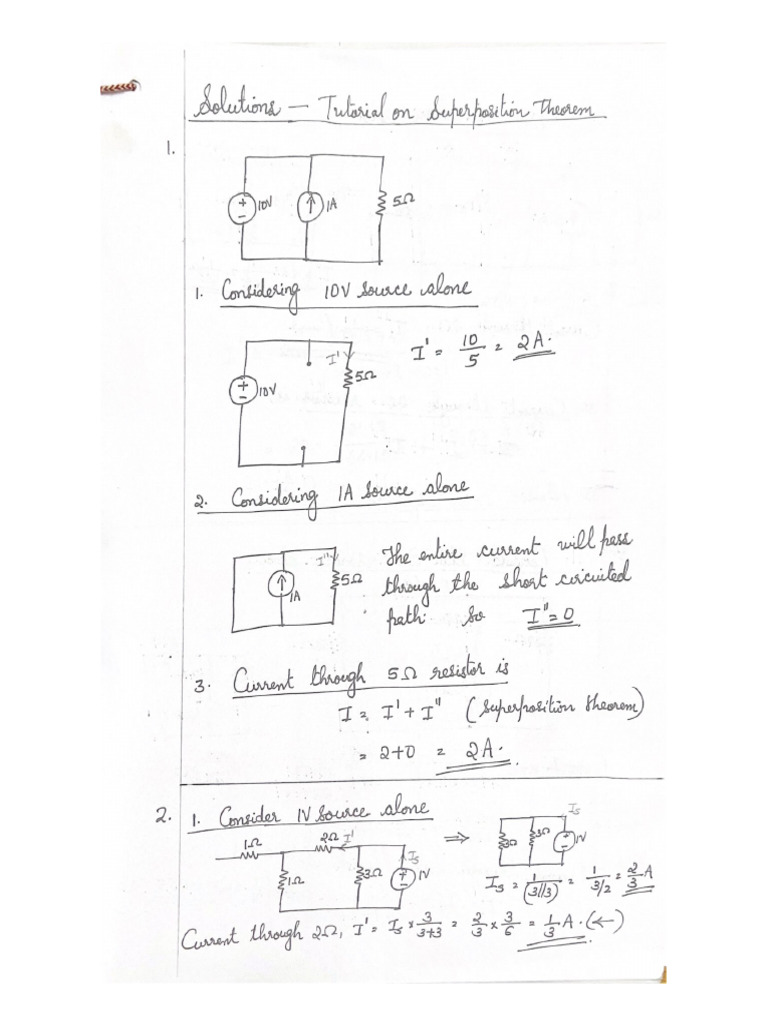 Solutions — Tutorial on Superposition Theorem
1.
10V
1A
5Ω
1. Considering 10V source alone
I'
10V
5Ω
I' = 10/5 = 2A.
2. Considering 1A source alone
I''
1A
5Ω
The entire current will pass
through the short circuited
path. So I''=0
3. Current through 5Ω resistor is
I = I' + I'' (Superposition theorem)
= 2+0 = 2A.
2. 1. Consider 1V source alone
1Ω
2Ω
I'
1Ω
3Ω
Is
1V
⇒
3Ω
3Ω
Is
1V
Is = 1/(3//3) = 1/3/2 = 2/3 A
Current through 2Ω, I' = Is × 3/3+3 = 2/3 × 3/6 = 1/3 A. (←)